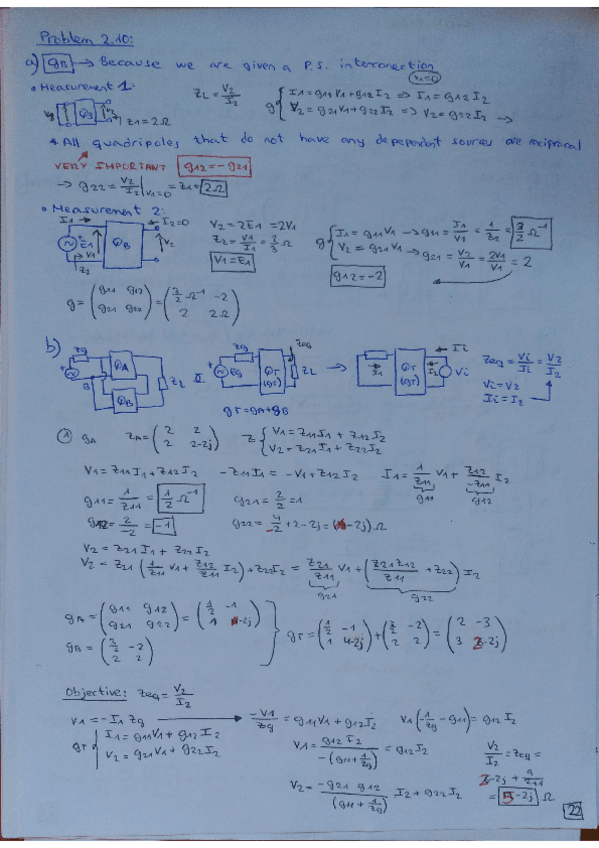 Problem 2.10:
a) gB → Because we are given a P.S. interconection
• Measurement 1:
Z1=2Ω
ZL = V2/I2
V1=0
g { I1 = g11 V1 + g12 I2 ⇒ I1 = g12 I2
V2 = g21 V1 + g22 I2 ⇒ V2 = g22 I2 →
* All quadripoles that do not have any dependent sources are reciprocal
VERY IMPORTANT g12 = -g21
→ g22 = V2/I2 |V1=0 = Z1 = 2Ω
• Measurement 2:
I1 I2=0
E1 V1 QB V2
Z2
V2 = 2E1 = 2V1
Z2 = V1/I1 = 2/3 Ω
V1=E1
g { I1 = g11 V1 → g11 = I1/V1 = 1/Z2 = 3/2 Ω⁻¹
V2 = g21 V1 → g21 = V2/V1 = 2V1/V1 = 2
g12 = -2
g = (g11 g12 g21 g22) = (3/2 Ω⁻¹ -2 2 2Ω)
b)
Zg QA B QB ZL
Zg Eg QT (gT) Zeq ZL
→ I1 QT (gT) I2 Ii Vi
gT = gA + gB
Zeq = Vi/Ii = V2/I2
Vi = V2
Ii = I2
① gA ZA = (2 2 2 2-2j) Z { V1 = Z11 I1 + Z12 I2
V2 = Z21 I1 + Z22 I2
V1 = Z11 I1 + Z12 I2 -Z11 I1 = -V1 + Z12 I2 I1 = 1/Z11 V1 + Z12/-Z11 I2
g11 g12
g11 = 1/Z11 = 1/2 Ω⁻¹ g21 = 2/2 = 1
g12 = 2/-2 = -1 g22 = 4/-2 + 2-2j = (-2j) Ω
V2 = Z21 I1 + Z22 I2
V2 = Z21 (1/Z11 V1 + Z12/Z11 I2) + Z22 I2 = Z21/Z11 V1 + (Z21 Z12/Z11 + Z22) I2
g21 g22
gA = (g11 g12 g21 g22) = (1/2 -1 1 -2j)
gB = (3/2 -2 2 2)
gT = (1/2 -1 1 -2j) + (3/2 -2 2 2) = (2 -3 3 2-2j)
Objective: Zeq = V2/I2
V1 = -I1 Zg → -V1/Zg = g11 V1 + g12 I2 V1 (-1/Zg - g11) = g12 I2
gT { I1 = g11 V1 + g12 I2
V2 = g21 V1 + g22 I2
V1 = g12 I2/-(g11 + 1/Zg) = g12 I2
V2/I2 = Zeq =
V2 = -g21 g12/(g11 + 1/Zg) I2 + g22 I2
= 5-2j Ω
22